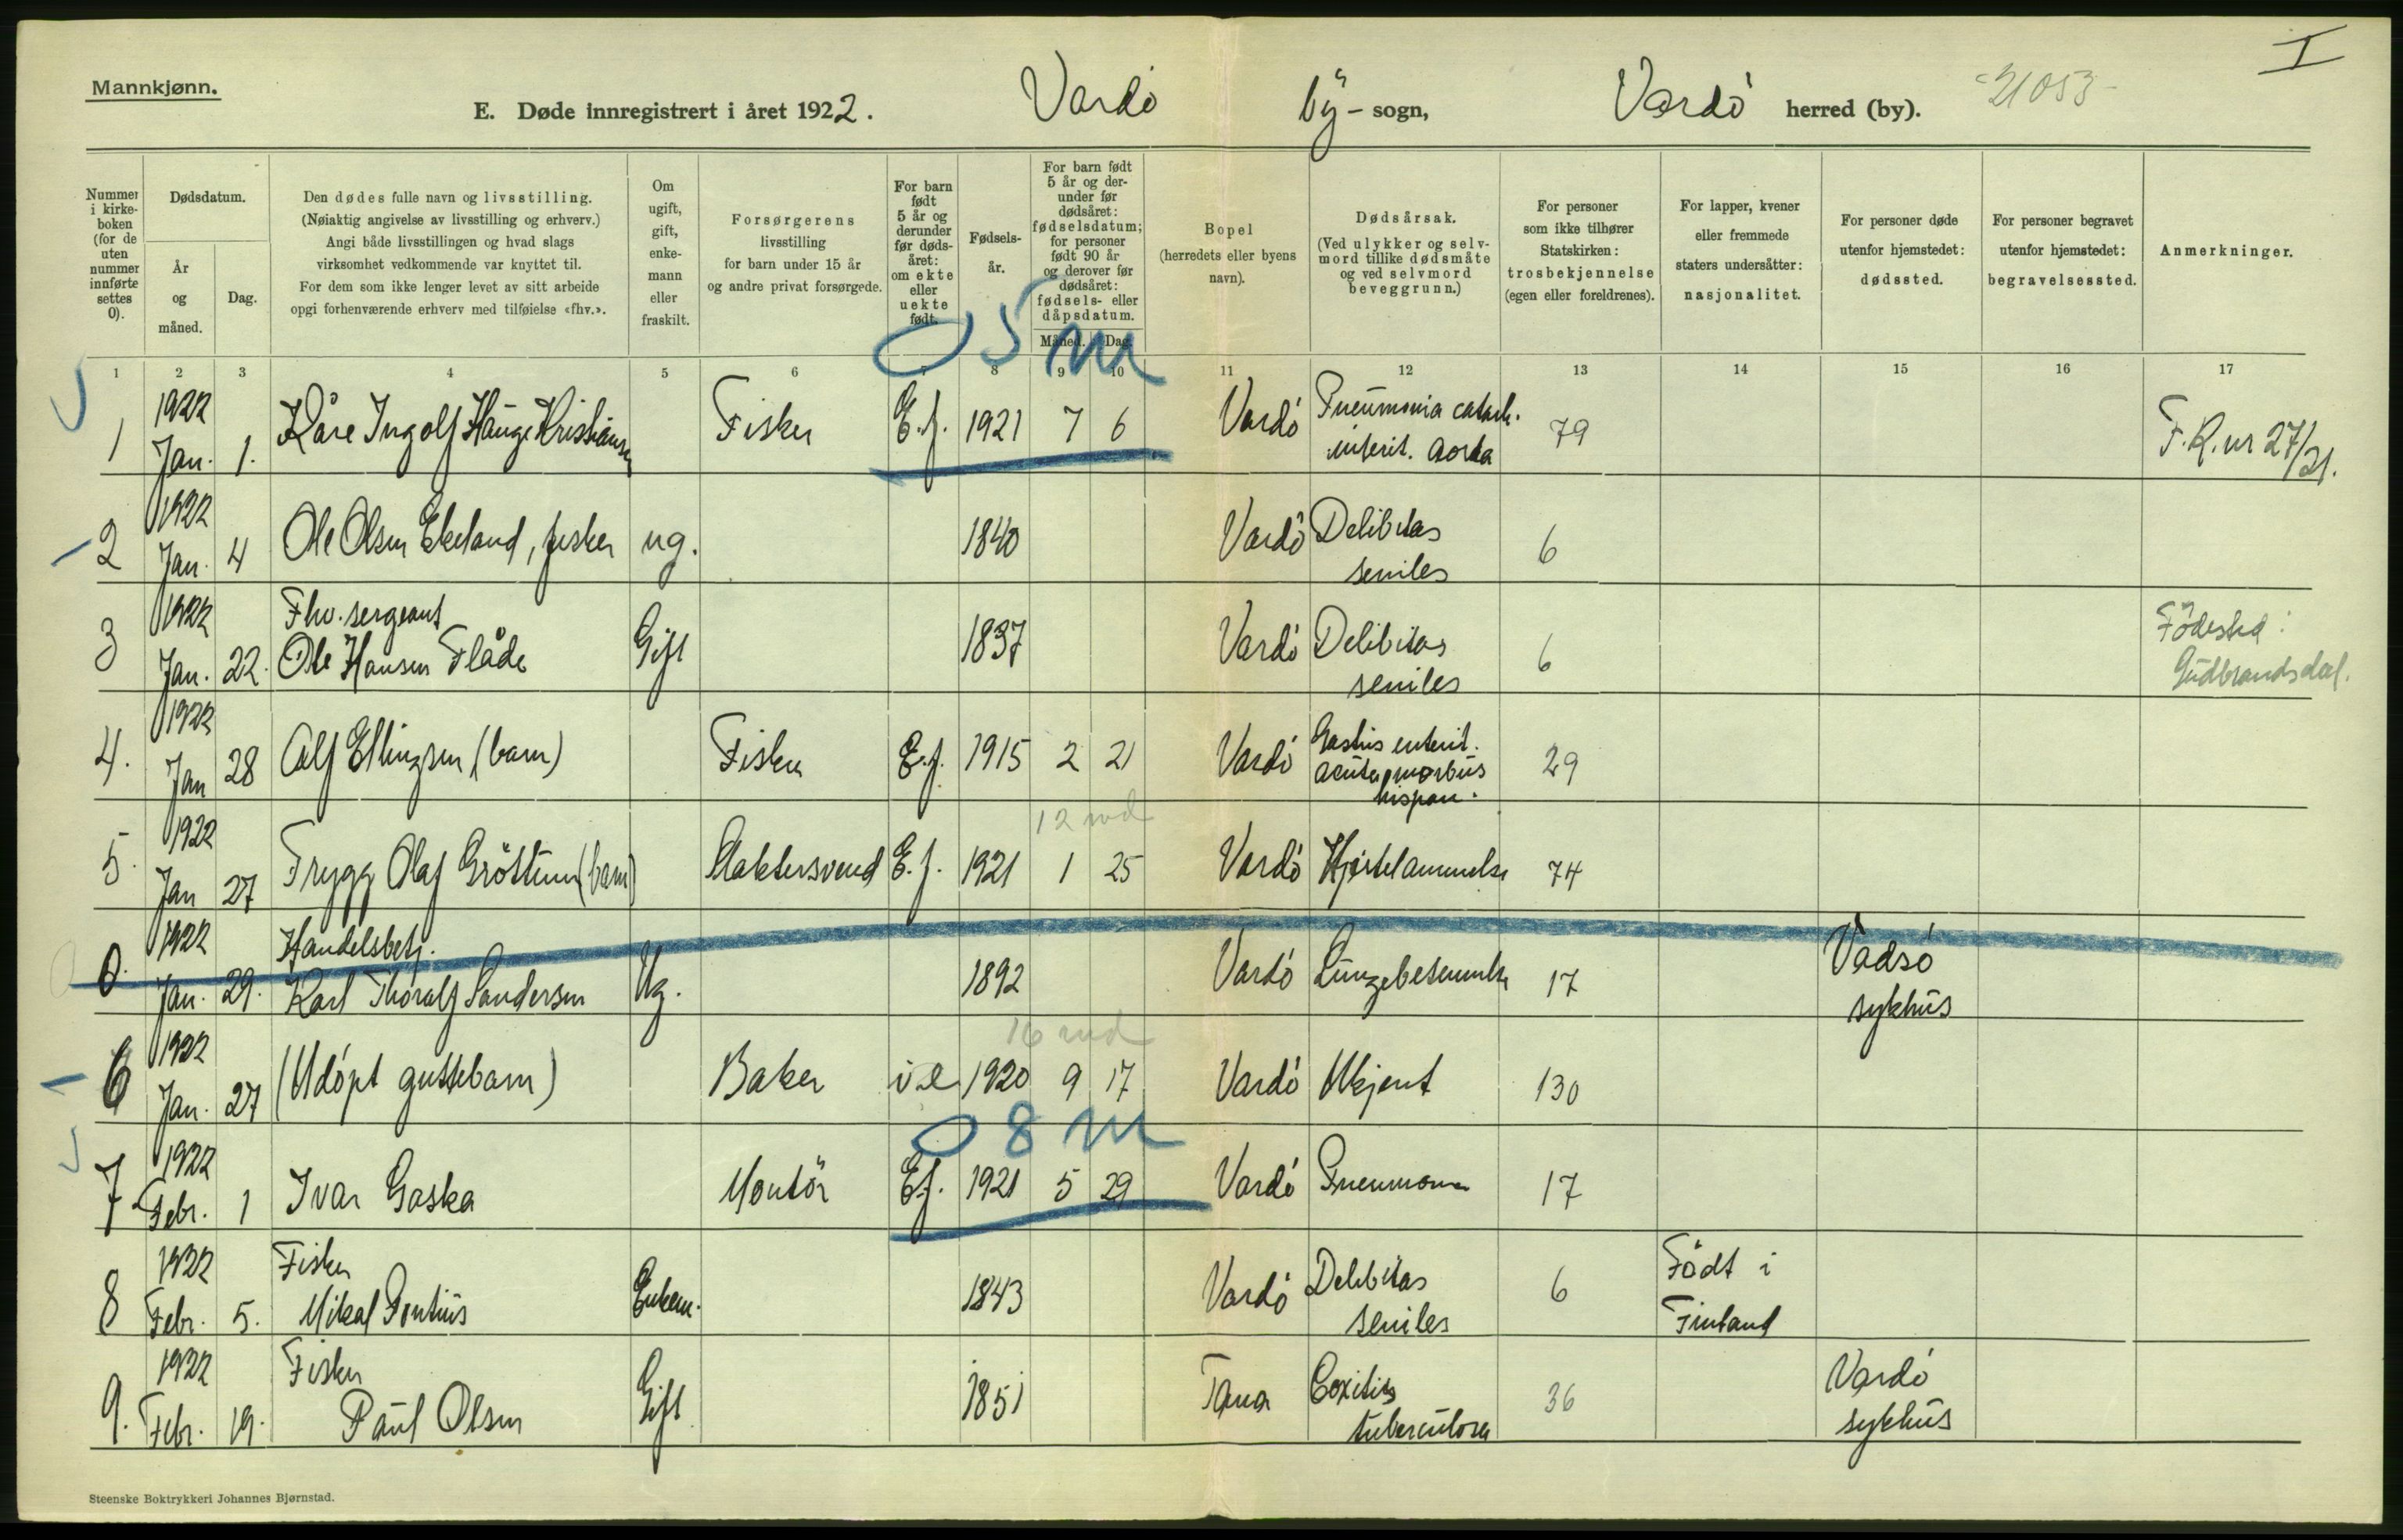 I
Mannkjønn.
E. Døde innregistrert i året 1922. Vardö by - sogn, Vardö herred (by). 21053
Nummer i kirkeboken (for de uten nummer innførte settes 0).
Dødsdatum.
År og måned.
Dag.
Den dødes fulle navn og livsstilling.
(Nøiaktig angivelse av livsstilling og erhverv.)
Angi både livsstillingen og hvad slags
virksomhet vedkommende var knyttet til.
For dem som ikke lenger levet av sitt arbeide
opgi forhenværende erhverv med tilføielse «fhv.».
Om ugift, gift, enkemann eller fraskilt.
Forsørgerens
livsstilling
for barn under 15 år
og andre privat forsørgede.
For barn født 5 år og derunder før dødsåret: om ekte eller uekte født.
Fødselsår.
For barn født 5 år og derunder før dødsåret: fødselsdatum; for personer født 90 år og derover før dødsåret: fødsels- eller dåpsdatum.
Måned. Dag.
Bopel
(herredets eller byens
navn).
Dødsårsak.
(Ved ulykker og selvmord tillike dødsmåte og ved selvmord beveggrunn.)
For personer
som ikke tilhører
Statskirken:
trosbekjennelse
(egen eller foreldrenes).
For lapper, kvener
eller fremmede
staters undersåtter:
nasjonalitet.
For personer døde
utenfor hjemstedet:
dødssted.
For personer begravet
utenfor hjemstedet:
begravelsessted.
Anmerkninger.
0 5 m
1 2 3 4 5 6 7 8 9 10 11 12 13 14 15 16 17
1 1922 Jan. 1. Kåre Ingolf Hauge Kristiansen Fisker E.f. 1921 7 6 Vardö Pneumonia catarh. interit. aorta 79 F.R. nr 27/21.
2 1922 Jan. 4 Ole Olsen Ekeland, fisker ug. 1840 Vardö Delibitas seniles 6
3 1922 Jan. 22. Fhv. sergeant Ole Hansen Flåde Gift 1837 Vardö Delibitas seniles 6 Födested: Gudbrandsdal.
4. 1922 Jan 28 Alf Ellingsen (barn) Fisker E.f. 1915 2 21 Vardö Gastris enterit. acuta, morbus hispan. 29
12 md
5. 1922 Jan 27 Trygg Olaf Gröttum (barn) Slaktersvend E.f. 1921 1 25 Vardö Hjertelammelse 74
0. 1922 Jan. 29. Handelsbetj. Karl Thoralf Sandersen Ug. 1892 Vardö Lungebetennelse 17 Vadsö sykhus
16 md
6 1922 Jan. 27 (Udöpt guttebarn) Baker u.e 1920 9 17 Vardö Ukjent 130
0 8 m
7. 1922 Febr. 1 Ivar Gaska Montör E.f. 1921 5 29 Vardö Pneumoni 17
8 1922 Febr. 5. Fisker Mikal Pontius Enkem. 1843 Vardö Delibitas seniles 6 Födt i Finland
9. 1922 Febr. 19. Fisker Paul Olsen Gift 1851 Tana Coxitis tuberculosa 36 Vardö sykhus
Steenske Boktrykkeri Johannes Bjørnstad.